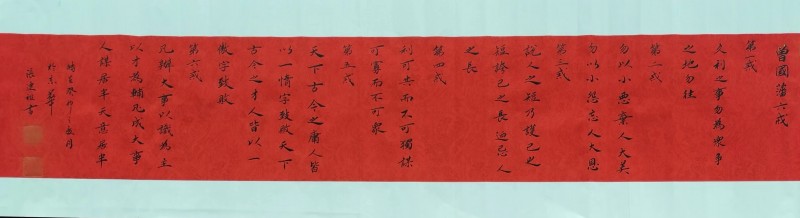 曾國藩六戒
第一戒
久利之事勿為眾爭
之地勿往
第二戒
勿以小惡棄人大美
勿以小怨忘人大恩
第三戒
說人之短乃護己之
短誇己之長迺忌人
之長
第四戒
利可共而不可獨謀
可寡而不可眾
第五戒
天下古今之庸人皆
以一惰字致敗天下
古今之才人皆以一
傲字致敗
第六戒
凡辦大事以識為主
以才為輔凡成大事
人謀居半天意居半
時在癸卯之月
於京華
張連書